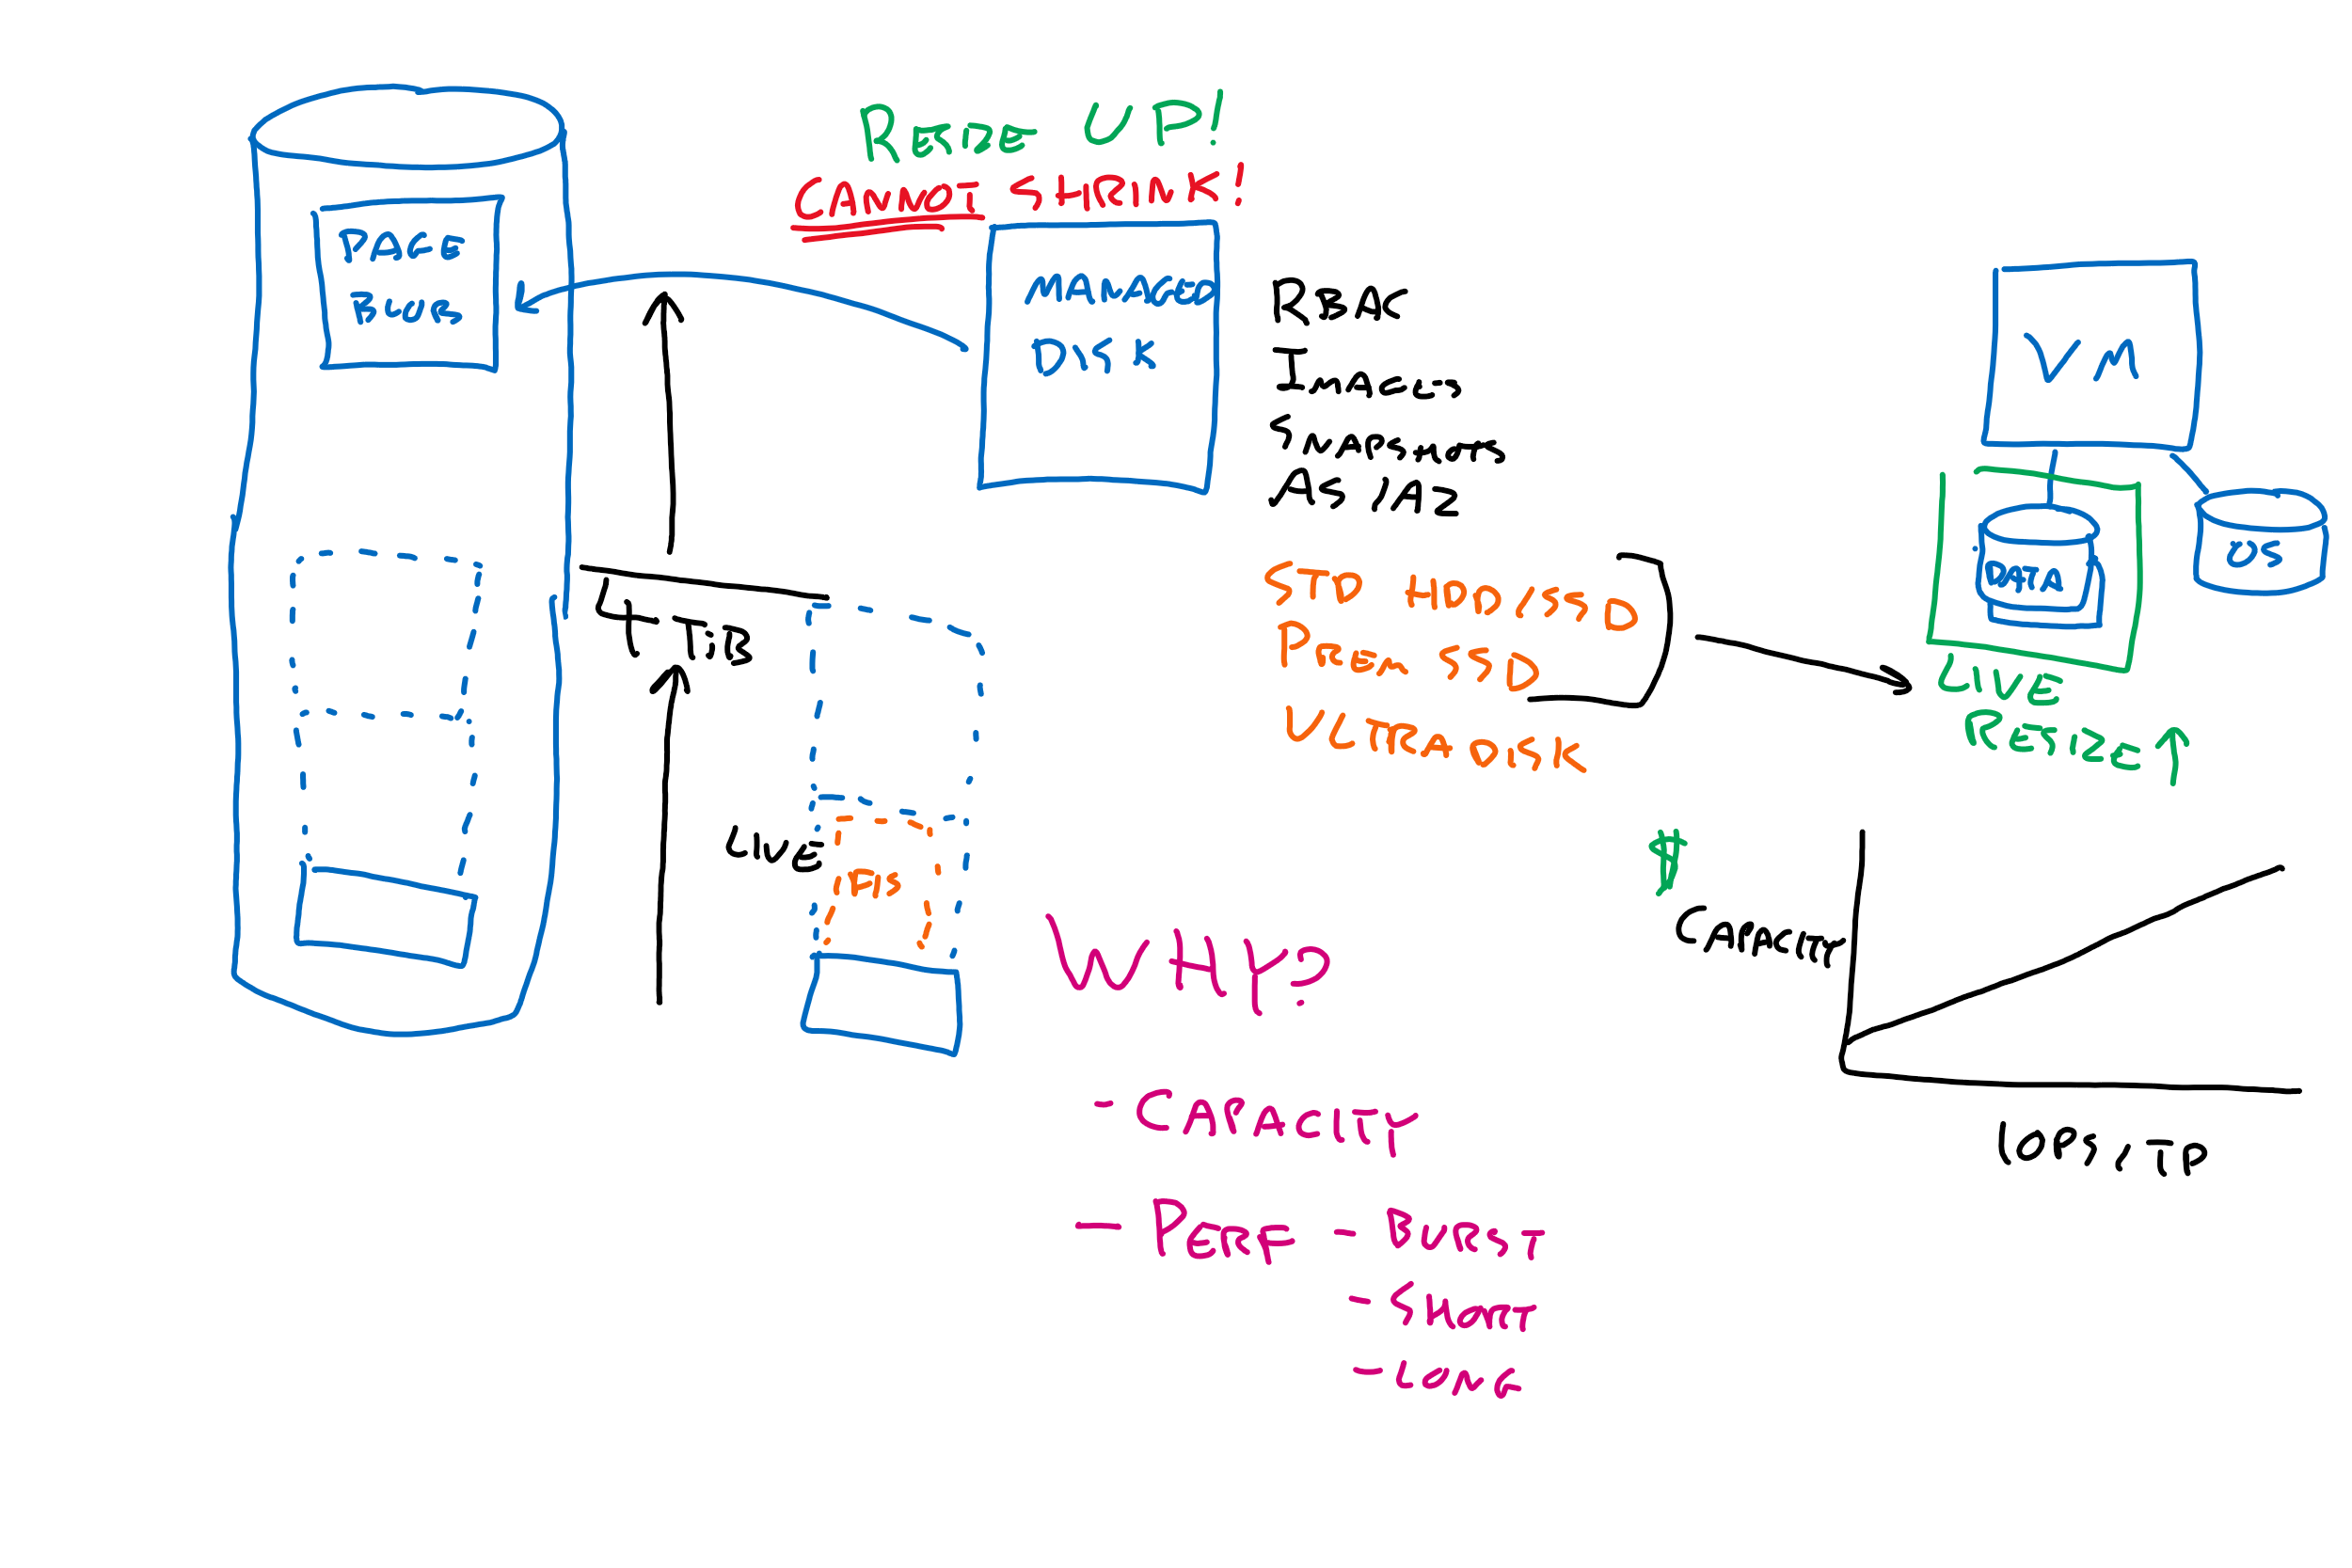 RESIZE UP!
CANNOT SHRINK!
PAGE
BLOB
MANAGED
DISK
RBAC
IMAGES
SNAPSHOTS
AS / AZ
VM
OS
DATA
4 TiB
STD HDD / SSD
PREM SSD
ULTRADISK
LIVE
RESIZE ↑
LIVE
FS
WHY?
- CAPACITY
- PERF - BURST
- SHORT
- LONG
$
CAPACITY
IOPS, TP